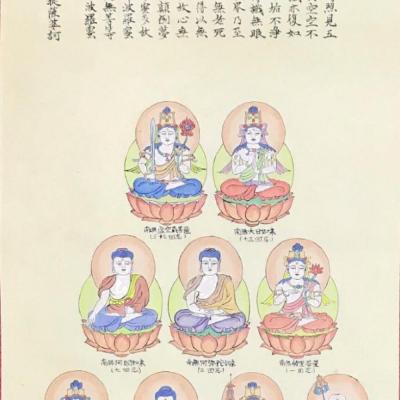 照見五
空空不
亦復如
垢不淨
識無眼
界乃至
無老死
得以無
故心無
顛倒夢
蜜多故
波羅蜜
無等等
波羅蜜
提薩婆訶
南無虚空蔵菩薩
南無大日如来
(十三回忌)
南無阿閦如来
(七回忌)
南無阿弥陀如来
(三回忌)
南無勢至菩薩
(一回忌)